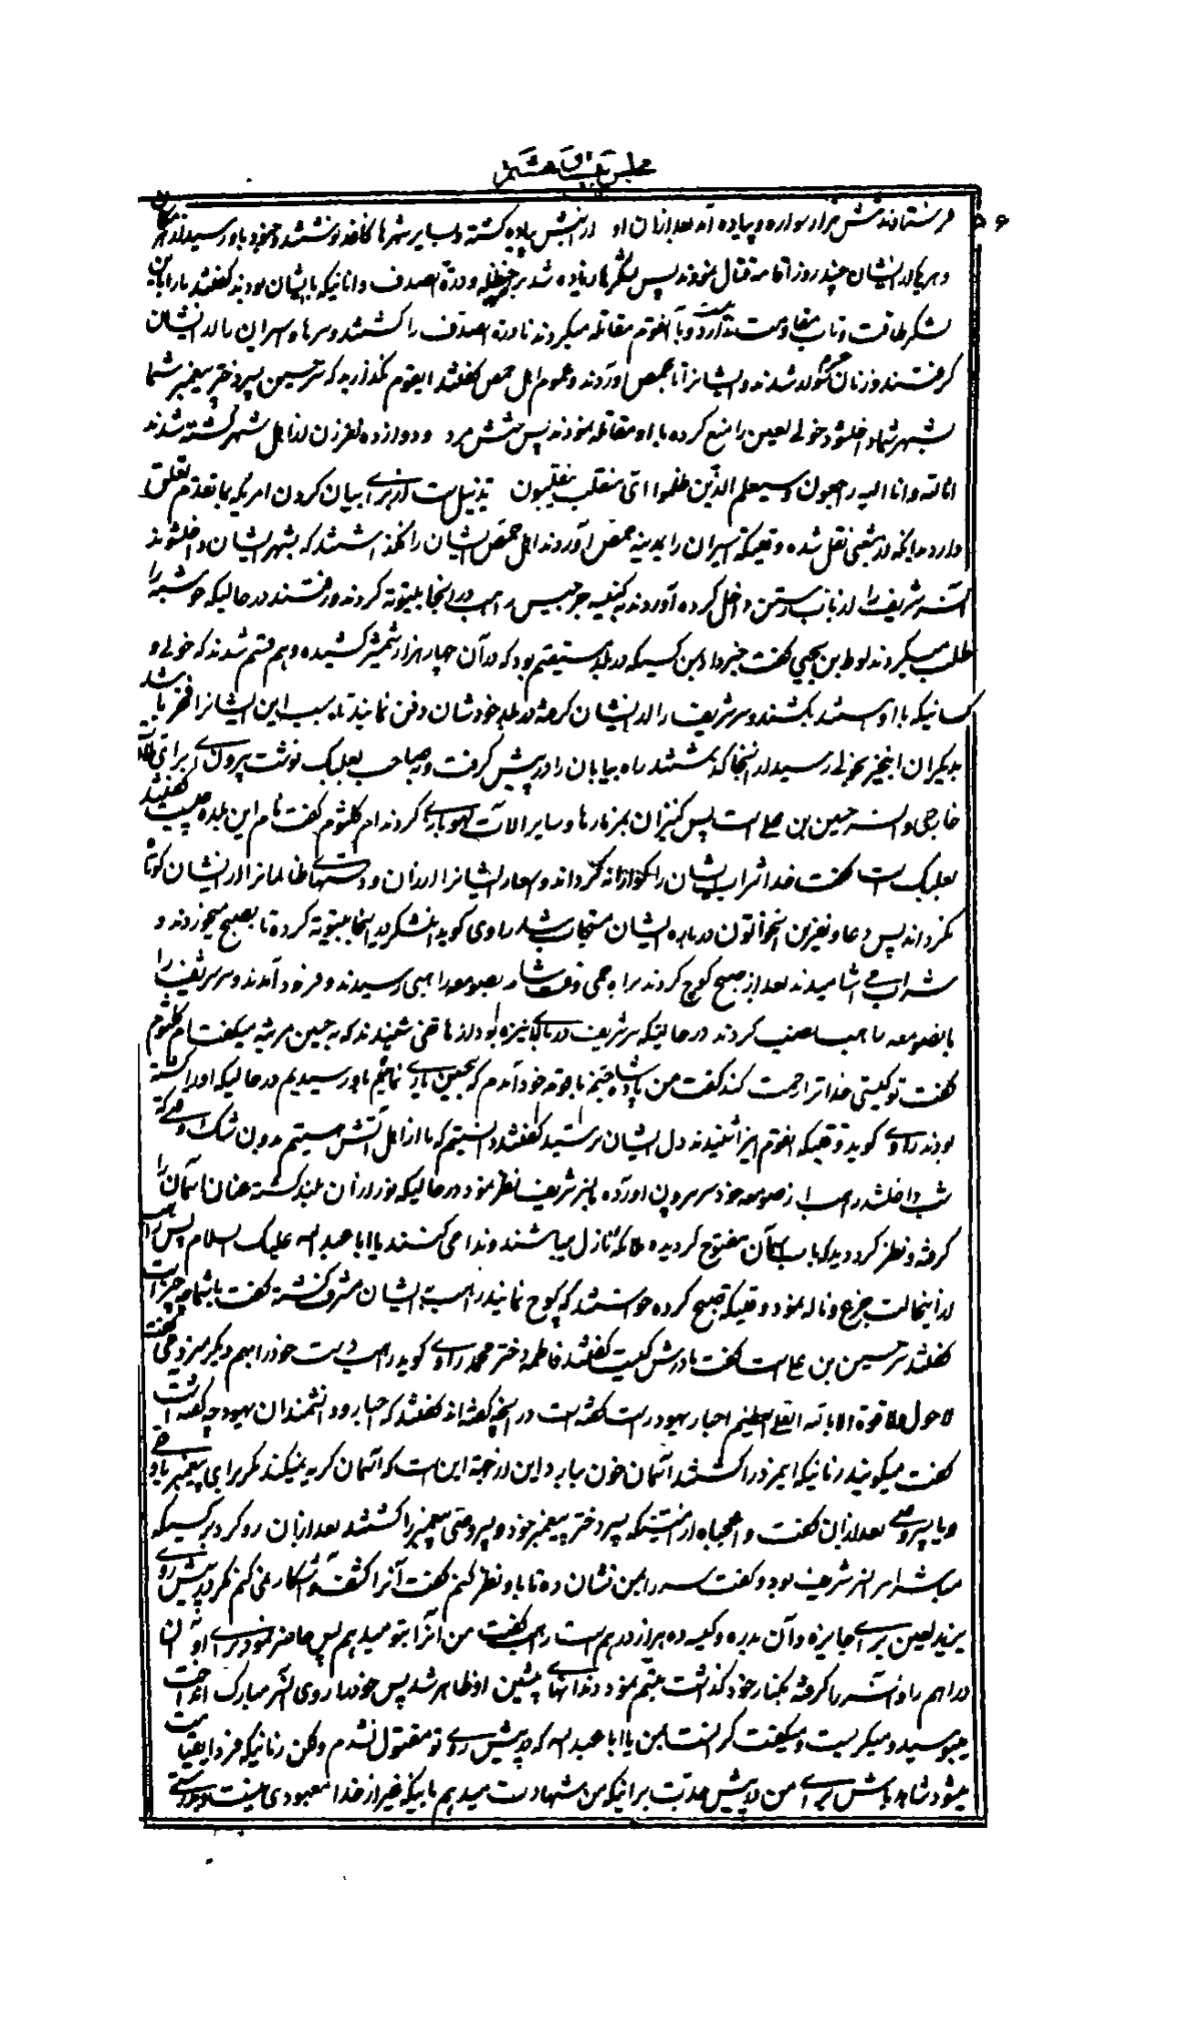 مجلس بیست هشتم
۵۶
فرستادند شش هزار سواره و پیاده آمد بعد از آن او از شش پیاده گشته و بسایر شهرها کاغذ نوشتند و جنود باو رسیدند
و هر یک از ایشان چند روز اقامه قتال نمودند پس لشگرها زیاده شد بر حنظله و درة الصدف و آنانیکه با ایشان بودند گفتند مارا باین
لشکر طاقت و تاب مقاومت ندارد و با آنقوم مقاتله میکردند تا درة الصدف را کشتند و سرها و اسیران را از ایشان
گرفتند و زنان شدند و ایشانرا تا بحمص آوردند و عموم اهل حمص گفتند ایقوم نگذارید که سر حسین پسر دختر پیغمبر شما
بشهر شما داخل شود خولی لعین را منع کرده با او مقاتله نمودند پس شش مرد و دوازده نفر زن از اهل شهر کشته شدند
انا لله و انا الیه راجعون و سیعلم الذین ظلموا ای منقلب ینقلبون تذییل است از برای بیان کردن امریکه بما تقدم تعلق
دارد بدانکه از شعبی نقل شده وقتیکه اسیران را بمدینه حمص آوردند اهل حمص ایشان را نگذاشتند که بشهر ایشان داخل شوند
آنسر شریف را از باب رستن داخل کرده آوردند به کنیسه جرجیس راهب در آنجا بیتوته کردند و رفتند در حالیکه خوشه را
طلب میکردند لوط بن یحیی گفت خبر داد بمن کسیکه در بلد مستقیم بود که در آن چهار هزار شمشیر کشیده و هم قسم شدند که خولی و
کسانیکه با او هستند بکشند و سر شریف را از ایشان گرفته در بلد خودشان دفن نمایند تا بسبب این ایشانرا فخر باشد
بدیگران اینخبر بخولی رسید از اینجا گذشتند راه بیابان را در پیش گرفت و به صاحب بعلبک نوشت بیرون آی برای
خارجی و سر حسین بن علی است پس کنیزان بمزمارها و سایر آلات لهو بازی کردند ام کلثوم گفت نام این بلده چیست گفتند
بعلبک است گفت خدا شراب ایشان را گوارا نگرداند و اسعار ایشانرا ارزان و دستهای ظالمانرا از ایشان کوتاه
نگرداند پس دعا و نفرین آنخاتون درباره ایشان مستجاب شد راوی گوید آنلشکر در آنجا بیتوته کرده تا بصبح میخوردند و
شراب می آشامیدند بعد از صبح کوچ کردند براهی وقت شام بصومعه راهبی رسیدند و فرود آمدند و سر شریف را
بصومعه راهب نصب کردند در حالتیکه سر شریف در بالای نیزه بود از هاتفی شنیدند که به حسین مرثیه میگفت ام کلثوم
گفت تو کیستی خدا ترا رحمت کند گفت من پادشاه جنم با قوم خود آمدم که بحسین یاری نمائیم باو رسیدیم در حالیکه او را کشته
بودند راوی گوید وقتیکه آنقوم این را شنیدند دل ایشان ترسید گفتند دانستیم که ما از اهل آتش هستیم بدون شک وقتیکه
شب داخل شد راهب از صومعه خود سر بیرون آورده بسر شریف نظر نمود در حالیکه نور از آن بلند گشته عنان آسمان را
گرفته و نظر کرد دید که باب آسمان مفتوح گردیده ملائکه نازل میباشند و ندا می کنند یا ابا عبدالله علیک السلام پس راهب
از اینحالت جزع و ناله نمود وقتیکه صبح کرده خواستند که کوچ نمایند راهب به ایشان مشرف گشته گفت با شما چه چیز است
گفتند سر حسین بن علی است گفت مادرش کیست گفتند فاطمه دختر محمد راوی گوید راهب دست خود را بهم دیگر میزد می گفت
لا حول و لا قوة الا بالله العلی العظیم احبار یهود راست گفته است در آنچه گفته اند گفتند که احبار و دانشمندان یهود چه گفته است
گفت میگویند زمانیکه این مرد را کشتند آسمان خون ببارد و این از جهة این است که آسمان گریه نمیکند مگر برای پیغمبر یا وصی
و یا پسر وصی بعد از آن گفت واعجباه از امتیکه پسر دختر پیغمبر خود و پسر وصی پیغمبر را کشتند بعد از آن رو کرد بر کسیکه
مباشر امر سر شریف بود و گفت سر را بمن نشان ده تا باو نظر کنم گفت آنرا کشف و آشکار نمی کنم مگر در پیش روی
یزید لعین برای جایزه و آن بدره و کیسه ده هزار درهم است راهب گفت من آنرا بتو میدهم پس حاضر نمود برای او آن
دراهم را و آنسر را گرفته بکنار خود گذاشت تبسم نمود دندانهای پیشین او ظاهر شد پس خود را روی آنسر مبارک انداخت
میبوسید و میگریست و میگفت گران است بمن یا ابا عبدالله که در پیش روی تو مقتول نشدم و لکن زمانیکه فردا بقیامت
میشود شاهد باش برای من در پیش جدت بر اینکه من شهادت میدهم باینکه غیر از خدا معبودی نیست و بدرستی